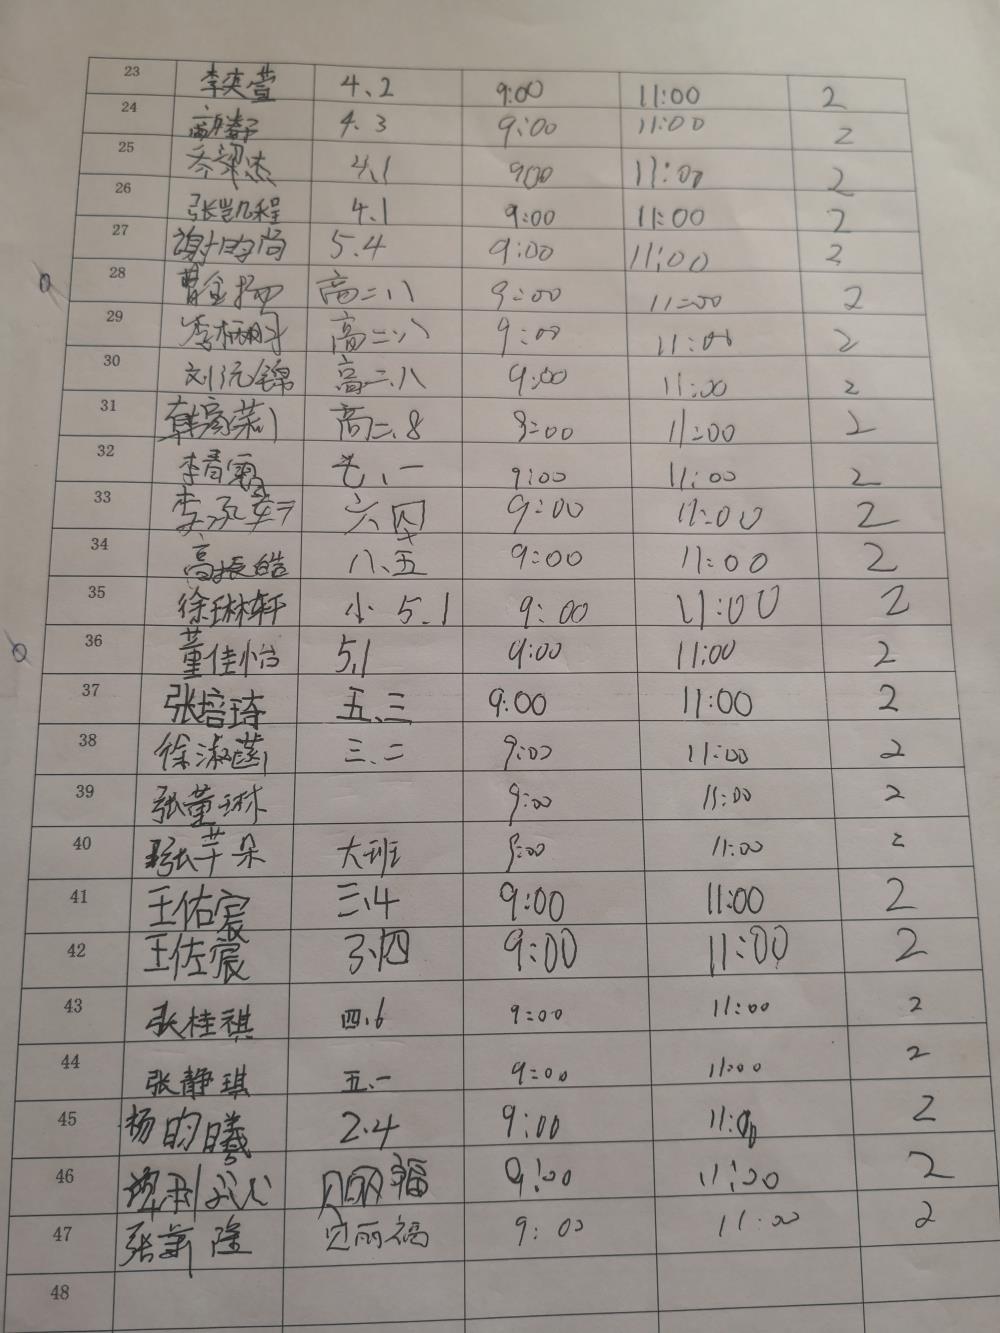 23 李奕萱 4、2 9:00 11:00 2
24 4.3 9:00 11:00 2
25 4.1 900 11:00 2
26 张凯程 4.1 9:00 11:00 2
27 谢昀尚 5.4 9:00 11:00 2
28 曹金扬 高二八 9:00 11:00 2
29 高二八 9:00 11:00 2
30 刘沅锦 高二、八 9:00 11:00 2
31 高二、8 9:00 11:00 2
32 李青霓 七、一 9:00 11:00 2
33 六、四 9:00 11:00 2
34 高振皓 八、五 9:00 11:00 2
35 徐琳轩 小 5.1 9:00 11:00 2
36 董佳怡 5.1 9:00 11:00 2
37 张培琦 五、三 9:00 11:00 2
38 徐淑菡 三、二 9:00 11:00 2
39 张董琳 9:00 11:00 2
40 张芊朵 大班 9:00 11:00 2
41 王佑宸 三、4 9:00 11:00 2
42 王佐宸 3.四 9:00 11:00 2
43 张桂祺 四、6 9:00 11:00 2
44 张静琪 五、一 9:00 11:00 2
45 杨昀曦 2.4 9:00 11:00 2
46 贝丽福 9:00 11:00 2
47 贝丽福 9:00 11:00 2
48